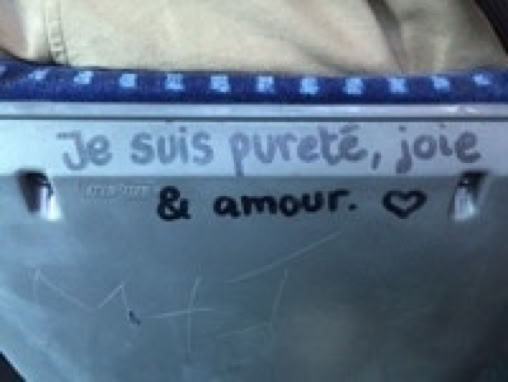 Je suis pureté, joie
& amour. ♡
M + J